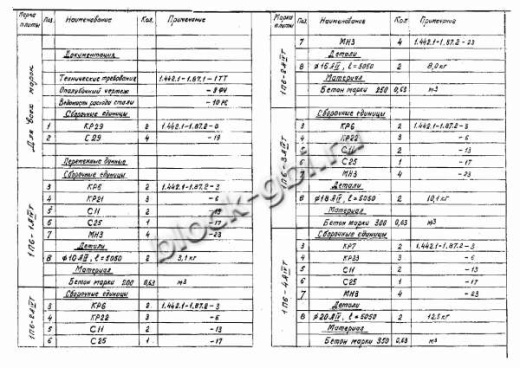 Марка плиты Поз. Наименование Кол. Примечание
Для всех марок
Документация
Технические требования 1.442.1-1.87.1-1ТТ
Опалубочный чертеж
Ведомость расхода стали -10РС
Сборочные единицы
1 КР29 2
2 С29 4 -19
Переменные данные
1П6-1АIIIТ
Сборочные единицы
3 КР6 2 1.442.1-1.87.2-3
4 КР21 3 -6
5 С11 2 -13
6 С25 1 -17
7 МН3 4 -23
Детали
8 2
Материал
Бетон марки 200 0,63 м3
Сборочные единицы
3 КР6 2 1.442.1-1.87.2-3
4 КР22 3 -6
5 С11 2 -13
6 С25 1 -17
Марка плиты Поз. Наименование Кол Примечание
7 МН3 4 1.442.1-1.87.2-23
Детали
8 2 8,0кг
Материал
Бетон марки 250 0,63 м3
Сборочные единицы
3 КР6 2 1.442.1-1.87.2-3
4 3 -6
5 С11 2 -13
6 С25 1 -17
7 МН3 4 -23
Детали
8 2 10,1кг
Материал
Бетон марки 300 0,63 м3
Сборочные единицы
3 КР7 2 1.442.1-1.87.2-3
4 КР23 3 -6
5 С11 2 -13
6 С25 1 -17
7 МН3 4 -23
Детали
8 2 12,5 кг
Материал
Бетон марки 350 0,63 м3
block-gbi.ru